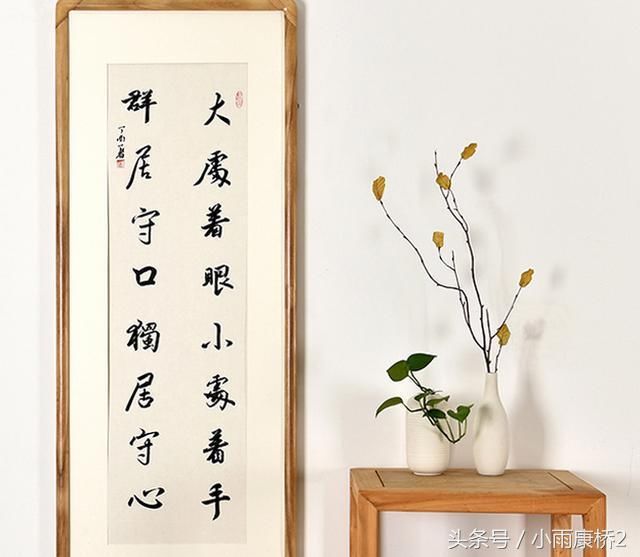 大處着眼小處着手
群居守口獨居守心
头条号 / 小雨康桥2